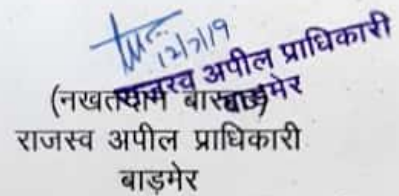 12/7/19
राजस्व अपील प्राधिकारी
बाड़मेर
(नखतदान बारहठ)
राजस्व अपील प्राधिकारी
बाड़मेर